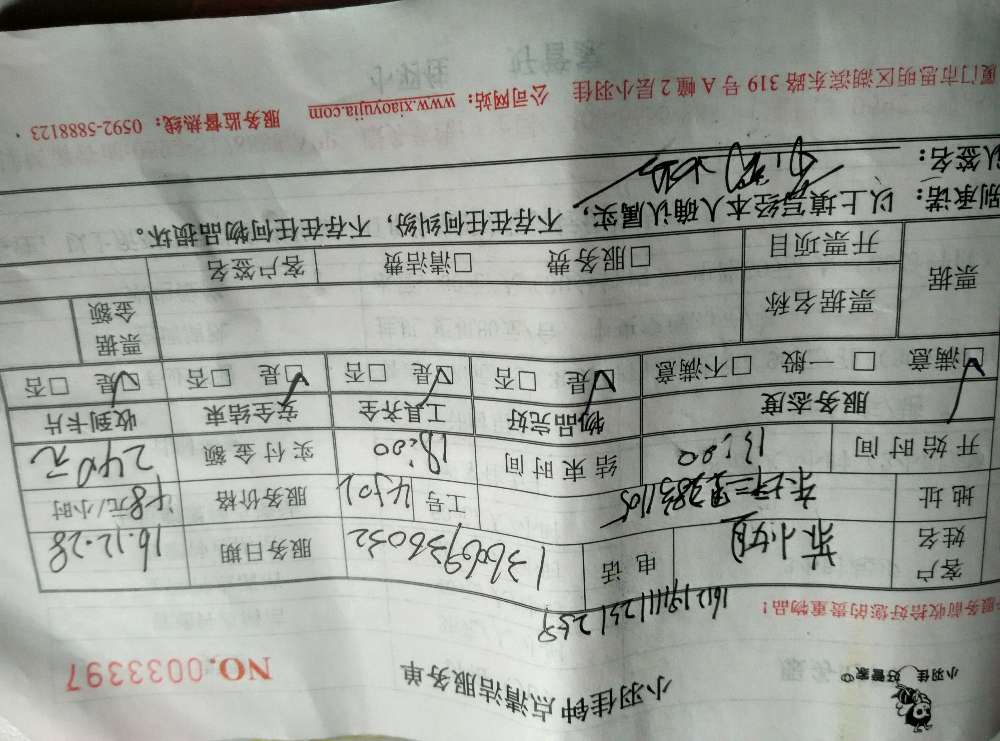 小羽佳 好管家
小羽佳钟点清洁服务单
NO.0033397
服务前收拾好您的贵重物品!
客户姓名 电话 13606936032 服务日期 16.12.28
地址 工号 4302 服务价格 48元/小时
开始时间 13:00 结束时间 18:00 实付金额 240元
服务态度 物品完好 工具齐全 安全结束 收到卡片
☑满意 □一般 □不满意 ☑是 □否 ☑是 □否 ☑是 □否 ☑是 □否
票据 票据名称 票据金额
开票项目 □服务费 □清洁费 客户签名
别承诺:以上填写经本人确认属实,不存在任何纠纷,不存在任何物品损坏。
认签名:
厦门市思明区湖滨东路 319 号 A 幢 2 层小羽佳 公司网站:www.xiaoyujia.com 服务监督热线:0592-5888123